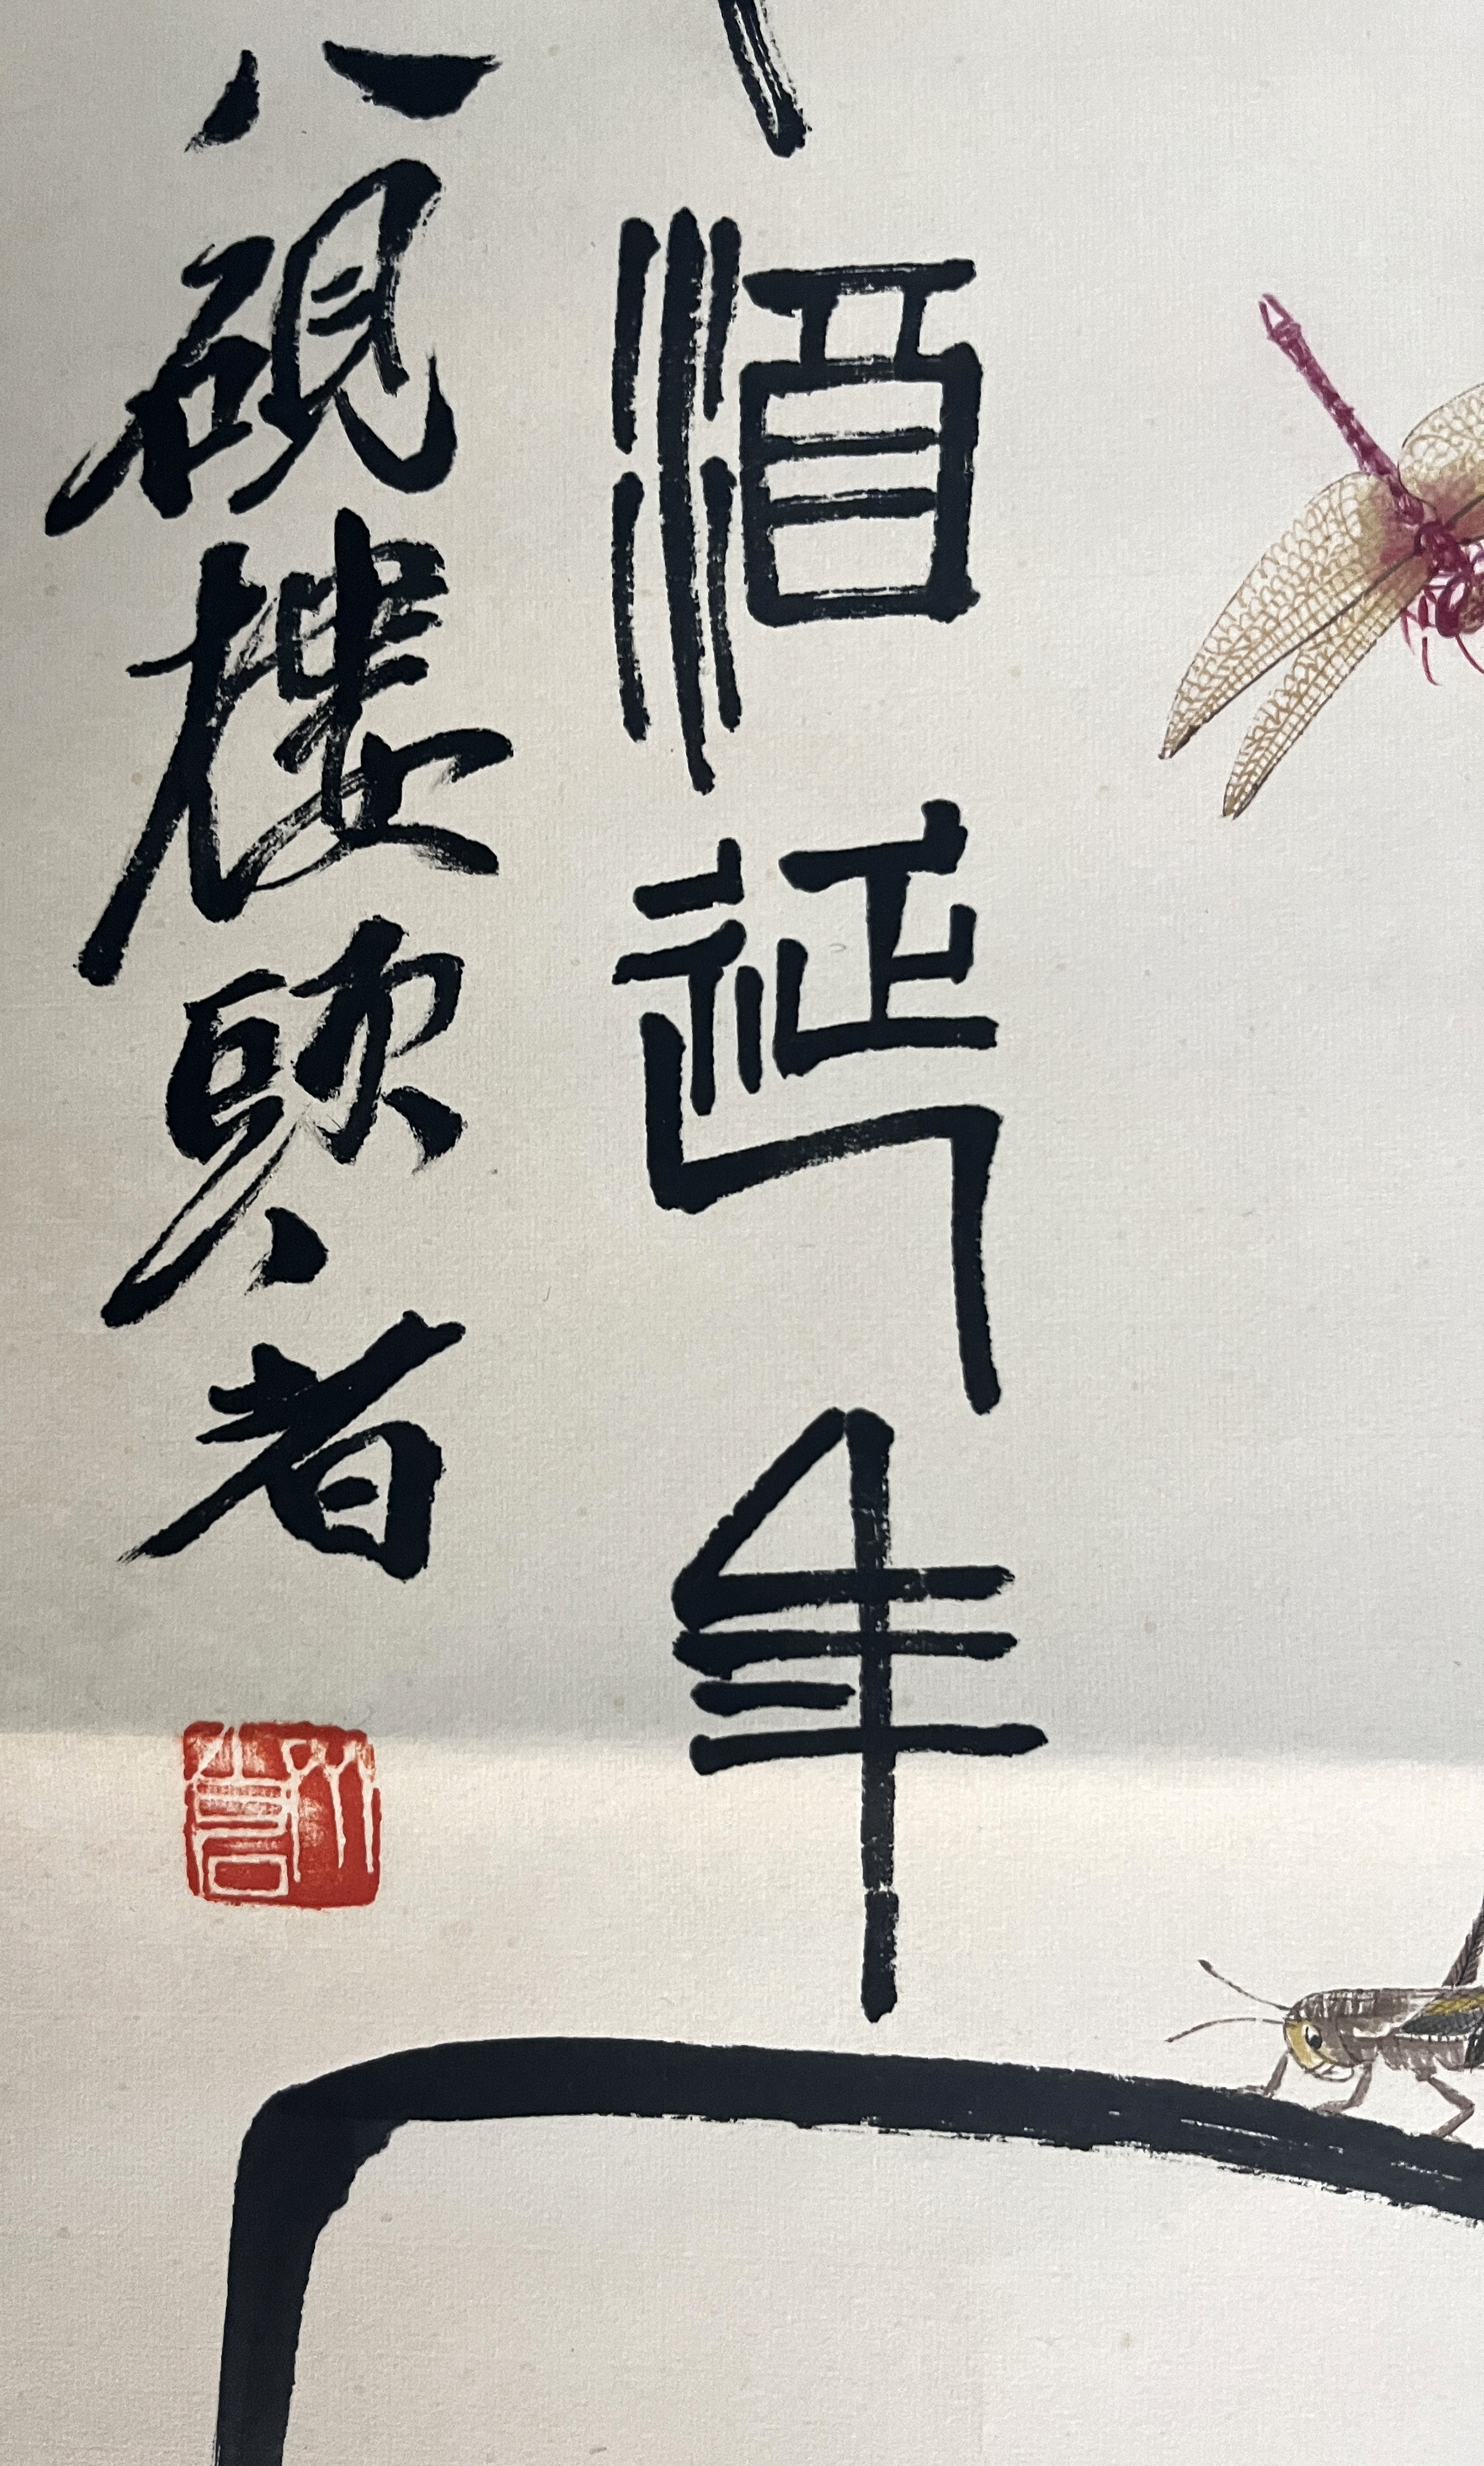 酒延年
八硯樓頭者